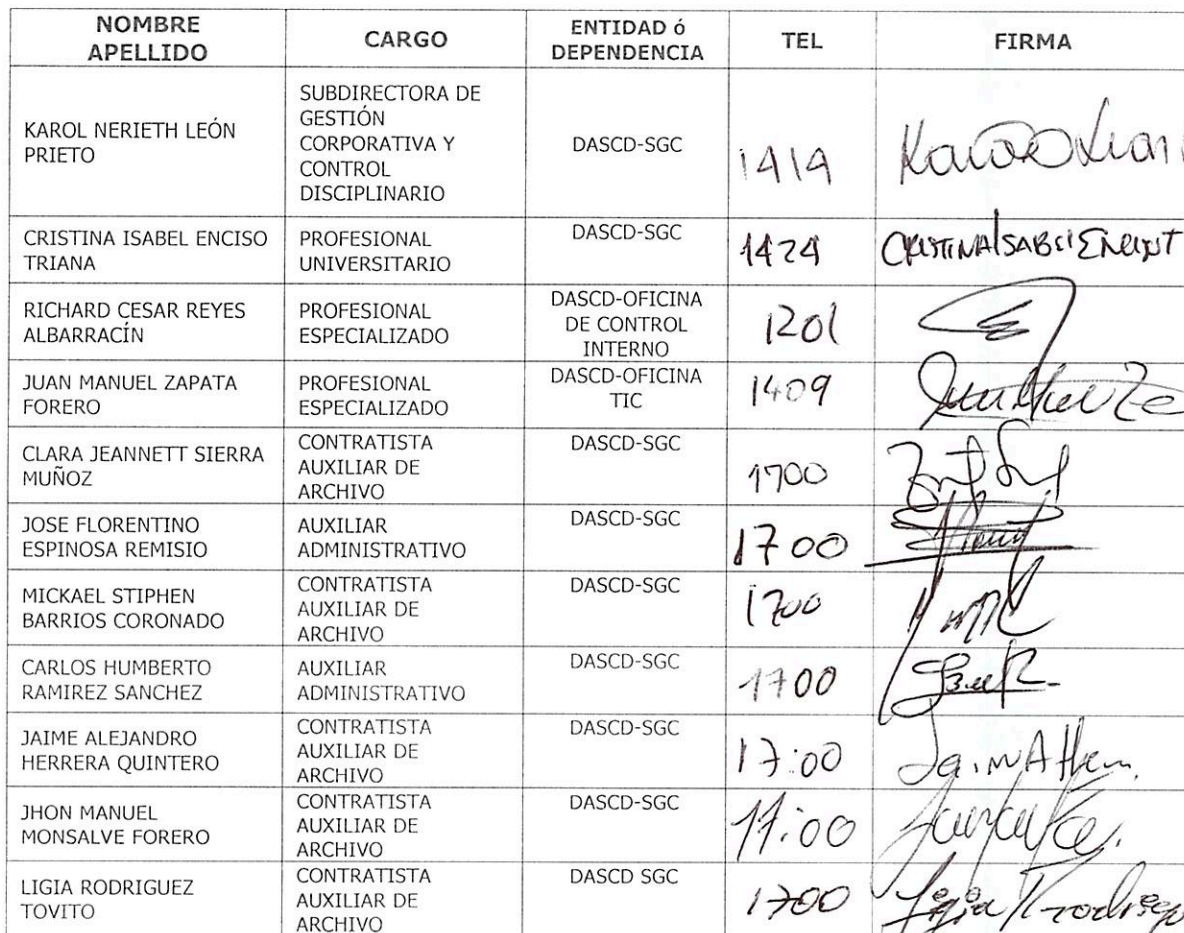 NOMBRE
APELLIDO
CARGO
ENTIDAD ó
DEPENDENCIA
TEL
FIRMA
KAROL NERIETH LEÓN
PRIETO
SUBDIRECTORA DE
GESTIÓN
CORPORATIVA Y
CONTROL
DISCIPLINARIO
DASCD-SGC
1414
CRISTINA ISABEL ENCISO
TRIANA
PROFESIONAL
UNIVERSITARIO
DASCD-SGC
1424
RICHARD CESAR REYES
ALBARRACÍN
PROFESIONAL
ESPECIALIZADO
DASCD-OFICINA
DE CONTROL
INTERNO
1201
JUAN MANUEL ZAPATA
FORERO
PROFESIONAL
ESPECIALIZADO
DASCD-OFICINA
TIC
1409
CLARA JEANNETT SIERRA
MUÑOZ
CONTRATISTA
AUXILIAR DE
ARCHIVO
DASCD-SGC
1700
JOSE FLORENTINO
ESPINOSA REMISIO
AUXILIAR
ADMINISTRATIVO
DASCD-SGC
1700
MICKAEL STIPHEN
BARRIOS CORONADO
CONTRATISTA
AUXILIAR DE
ARCHIVO
DASCD-SGC
1700
CARLOS HUMBERTO
RAMIREZ SANCHEZ
AUXILIAR
ADMINISTRATIVO
DASCD-SGC
1700
JAIME ALEJANDRO
HERRERA QUINTERO
CONTRATISTA
AUXILIAR DE
ARCHIVO
DASCD-SGC
17:00
JHON MANUEL
MONSALVE FORERO
CONTRATISTA
AUXILIAR DE
ARCHIVO
DASCD-SGC
17:00
LIGIA RODRIGUEZ
TOVITO
CONTRATISTA
AUXILIAR DE
ARCHIVO
DASCD SGC
1700